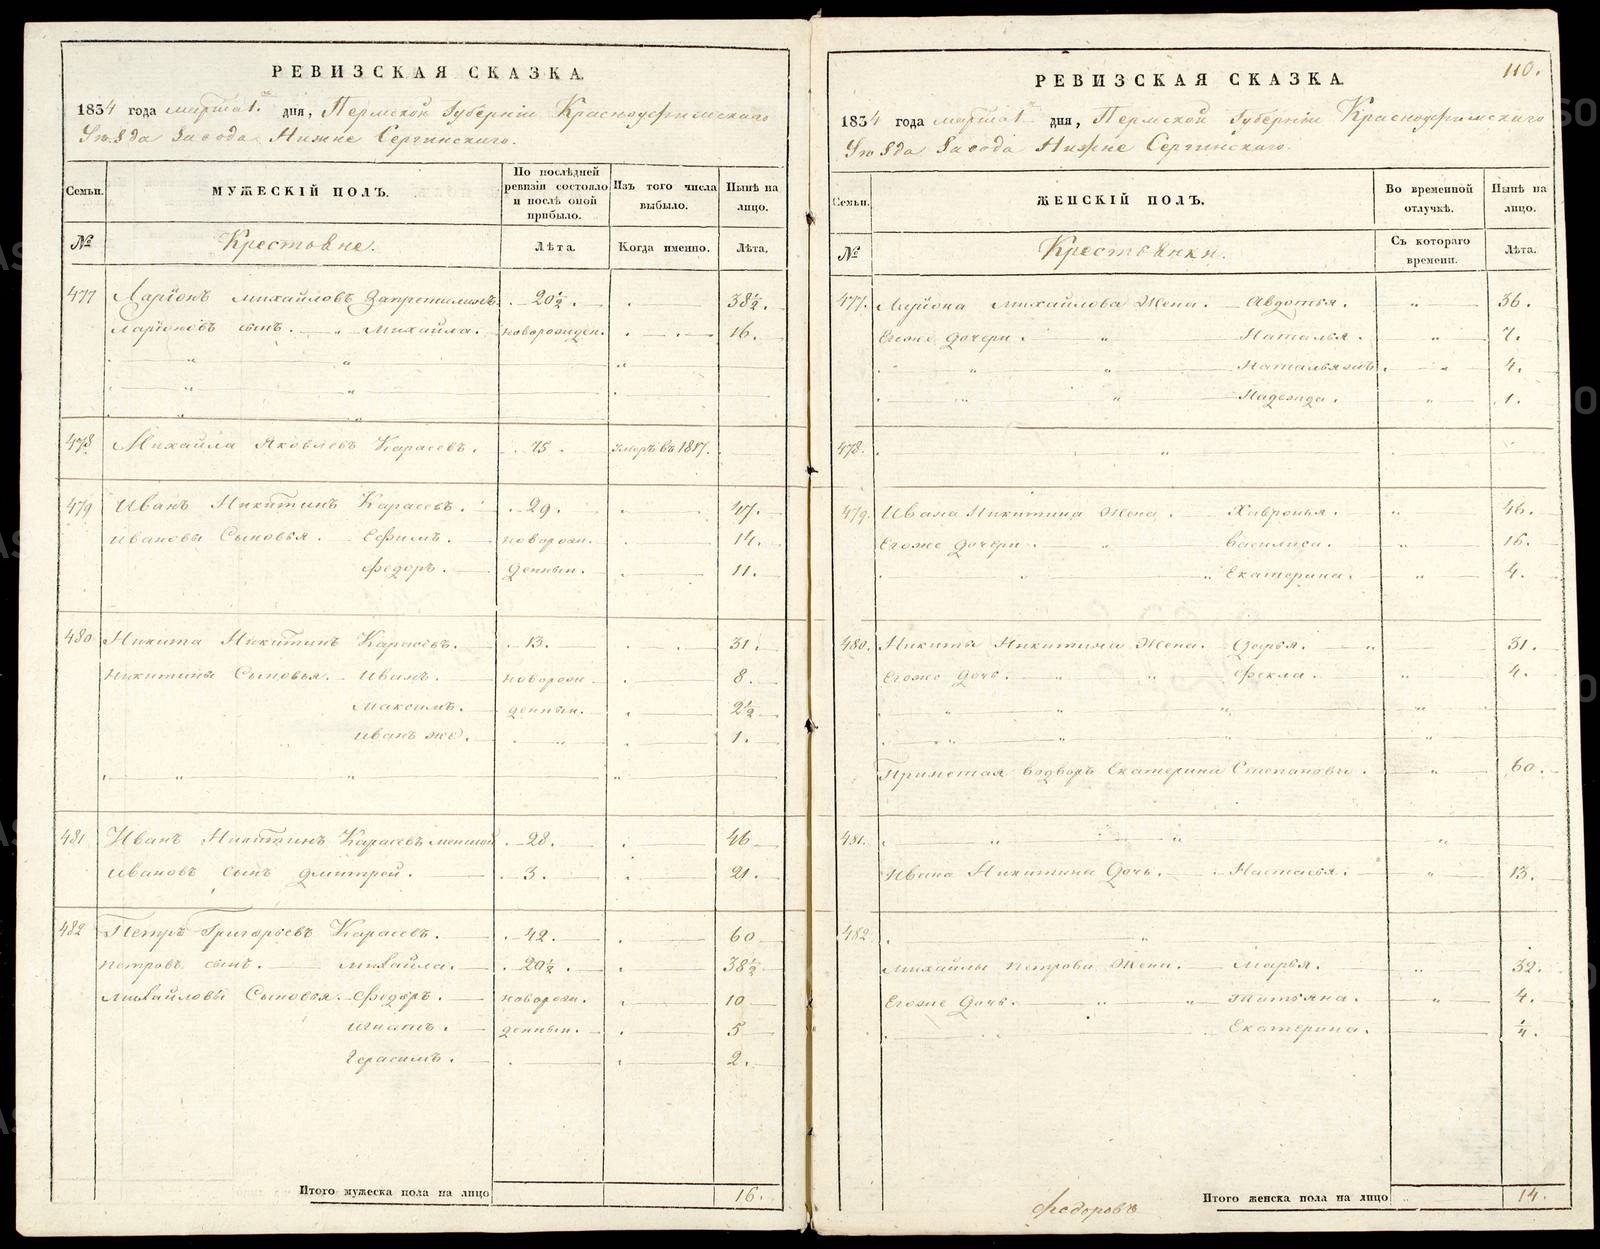 РЕВИЗСКАЯ СКАЗКА.
1834 года марта 1. дня, Пермской Губернiи Красноуфимскаго
Уѣзда Завода Нижне Сергинскаго.
Семьи. МУЖЕСКIЙ ПОЛЪ. По послѣдней ревизiи состояло и послѣ оной прибыло. Изъ того числа выбыло. Нынѣ на лицо.
№ Крестьяне. Лѣта. Когда именно. Лѣта.
477 Ларiонъ Михайловъ 20½. 38½.
Ларiоновъ сынъ. Михайла. новорожден. 16.
478 Михайла Яковлевъ Карасевъ. 75. умеръ въ 1817.
479 Иванъ Никитинъ Карасевъ. 29. 47.
Ивановы Сыновья. Ефимъ. новорож. 14.
Федоръ. денныи. 11.
480 Никита Никитинъ Карасевъ. 13. 31.
Никитины Сыновья. Иванъ. новорож 8.
Максимъ. денныи. 2½
Иванъ же. 1.
481 Иванъ Никитинъ Карасевъ меншой 28. 46
Ивановъ сынъ Дмитрей. 3. 21.
482 Петръ Григорьевъ Карасевъ. 42. 60
Петровъ сынъ. Михайла. 20½. 38½
Михайловы Сыновья. Федоръ. новорож. 10
Игнатъ. денныи. 5
Герасимъ. 2.
Итого мужеска пола на лицо 16.
110.
РЕВИЗСКАЯ СКАЗКА.
1834 года марта 1 дня, Пермской Губернiи Красноуфимскаго
Уѣзда Завода Нижне Сергинскаго.
Семьи. ЖЕНСКIЙ ПОЛЪ. Во временной отлучкѣ. Нынѣ на лицо.
№ Крестьянки. Съ котораго времени. Лѣта.
477. Ларiона Михайлова Жена. Авдотья. 36.
Егоже Дочери. Наталья. 7.
Наталья жъ. 4.
Надежда. 1.
478.
479. Ивана Никитина Жена. Хавронья. 46.
Егоже Дочери. Василиса. 16.
Екатерина. 4.
480. Никиты Никитина Жена. Дарья. 31.
Егоже Дочь. Фекла. 4.
Екатерина Степановы. 60.
481.
Ивана Никитина Дочь. Настасья. 13.
482.
Михайлы Петрова Жена. Марья. 32.
Егоже Дочь. Татьяна. 4.
Екатерина. ¼.
Итого женска пола на лицо 14.
Федоровъ